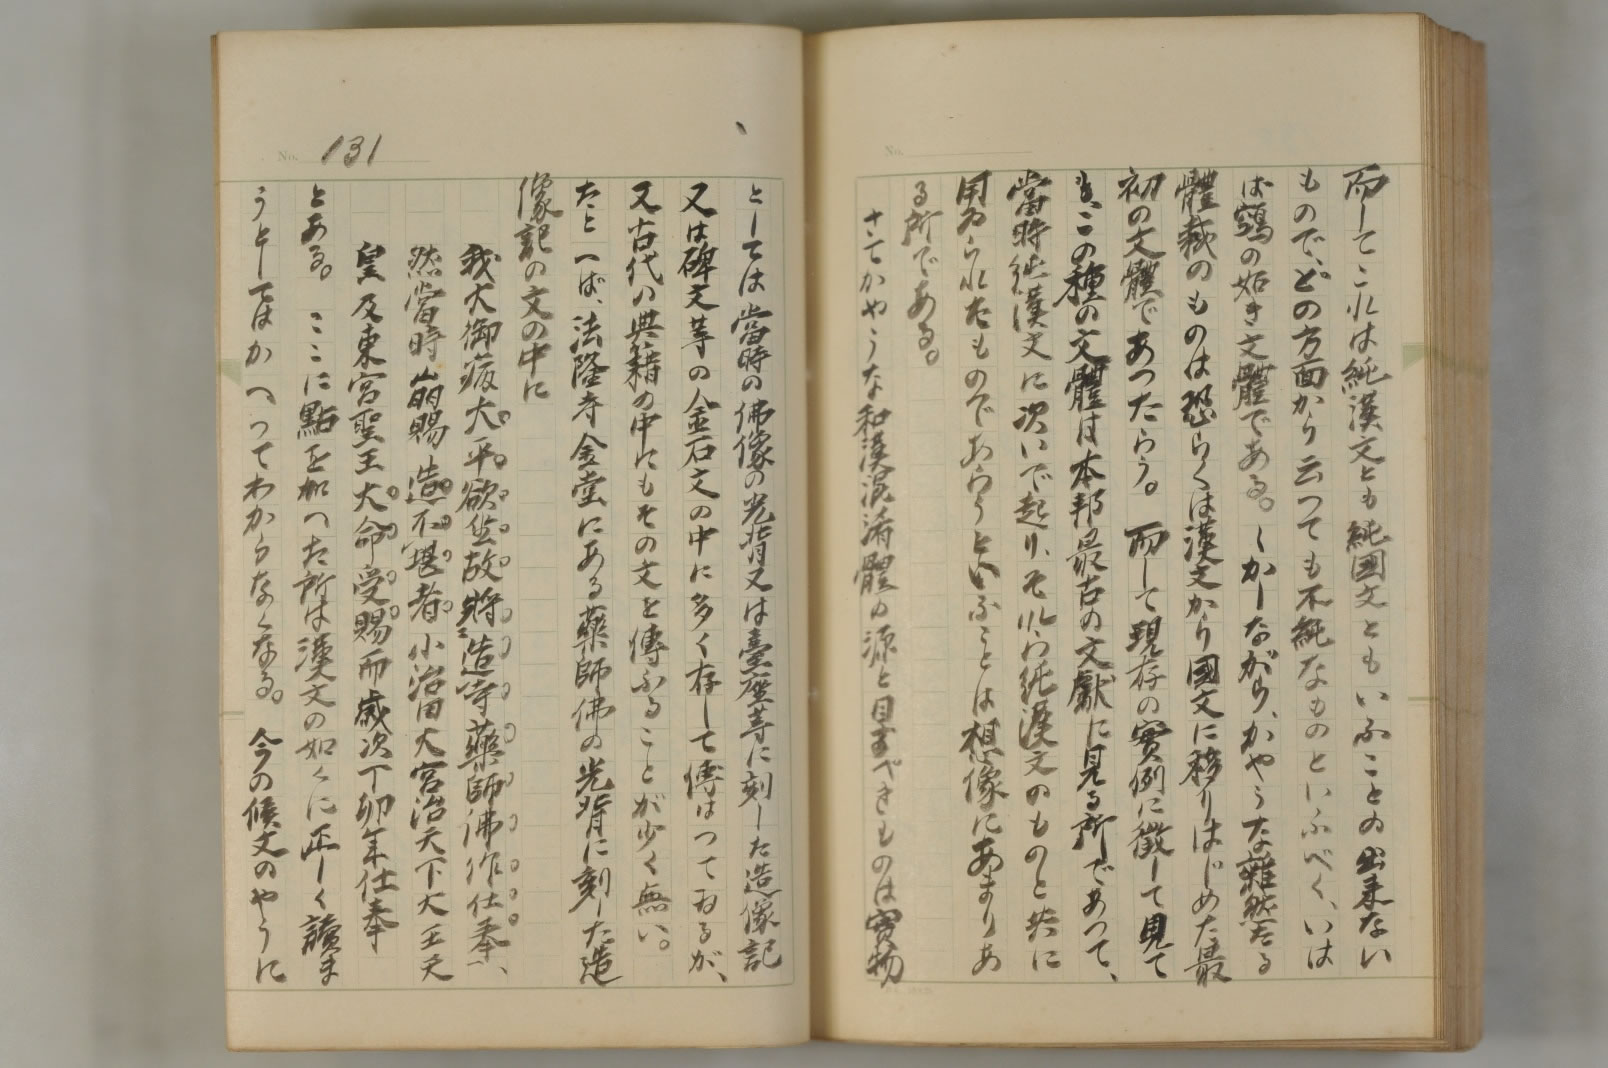 而してこれは純漢文とも純國文ともいふことの出来ない
もので、どの方面から云つても不純なものといふべく、いは
ば鵺の如き文體である。しかしながら、かやうな雜然たる
體裁のものは恐らくは漢文から國文に移りはじめた最
初の文體であつたらう。而して現存の實例に徴して見て
も、この種の文體は本邦最古の文獻に見る所であつて、
當時純漢文に次いで起り、それら純漢文のものと共に
用ゐられたものであらうといふことは想像にあまりあ
る所である。
さてかやうな和漢混淆體の源と目すべきものは實物
No. 131
としては當時の佛像の光背又は臺座等に刻した造像記
又は碑文等の金石文の中に多く存して傳はつてゐるが、
又古代の典籍の中にもその文を傳ふることが少く無い。
たとへば、法隆寺金堂にある藥師佛の光背に刻した造
像記の文の中に
我大御病大平欲坐故將造寺藥師佛作仕奉、
然當時崩賜造不堪者小治田大宮治天下大王天
皇及東宮聖王大命受賜而歳次丁卯年仕奉
とある。ここに點を加へた所は漢文の如くに正しく讀ま
うとしてはかへつてわからなくなる。今の候文のやうに
No.